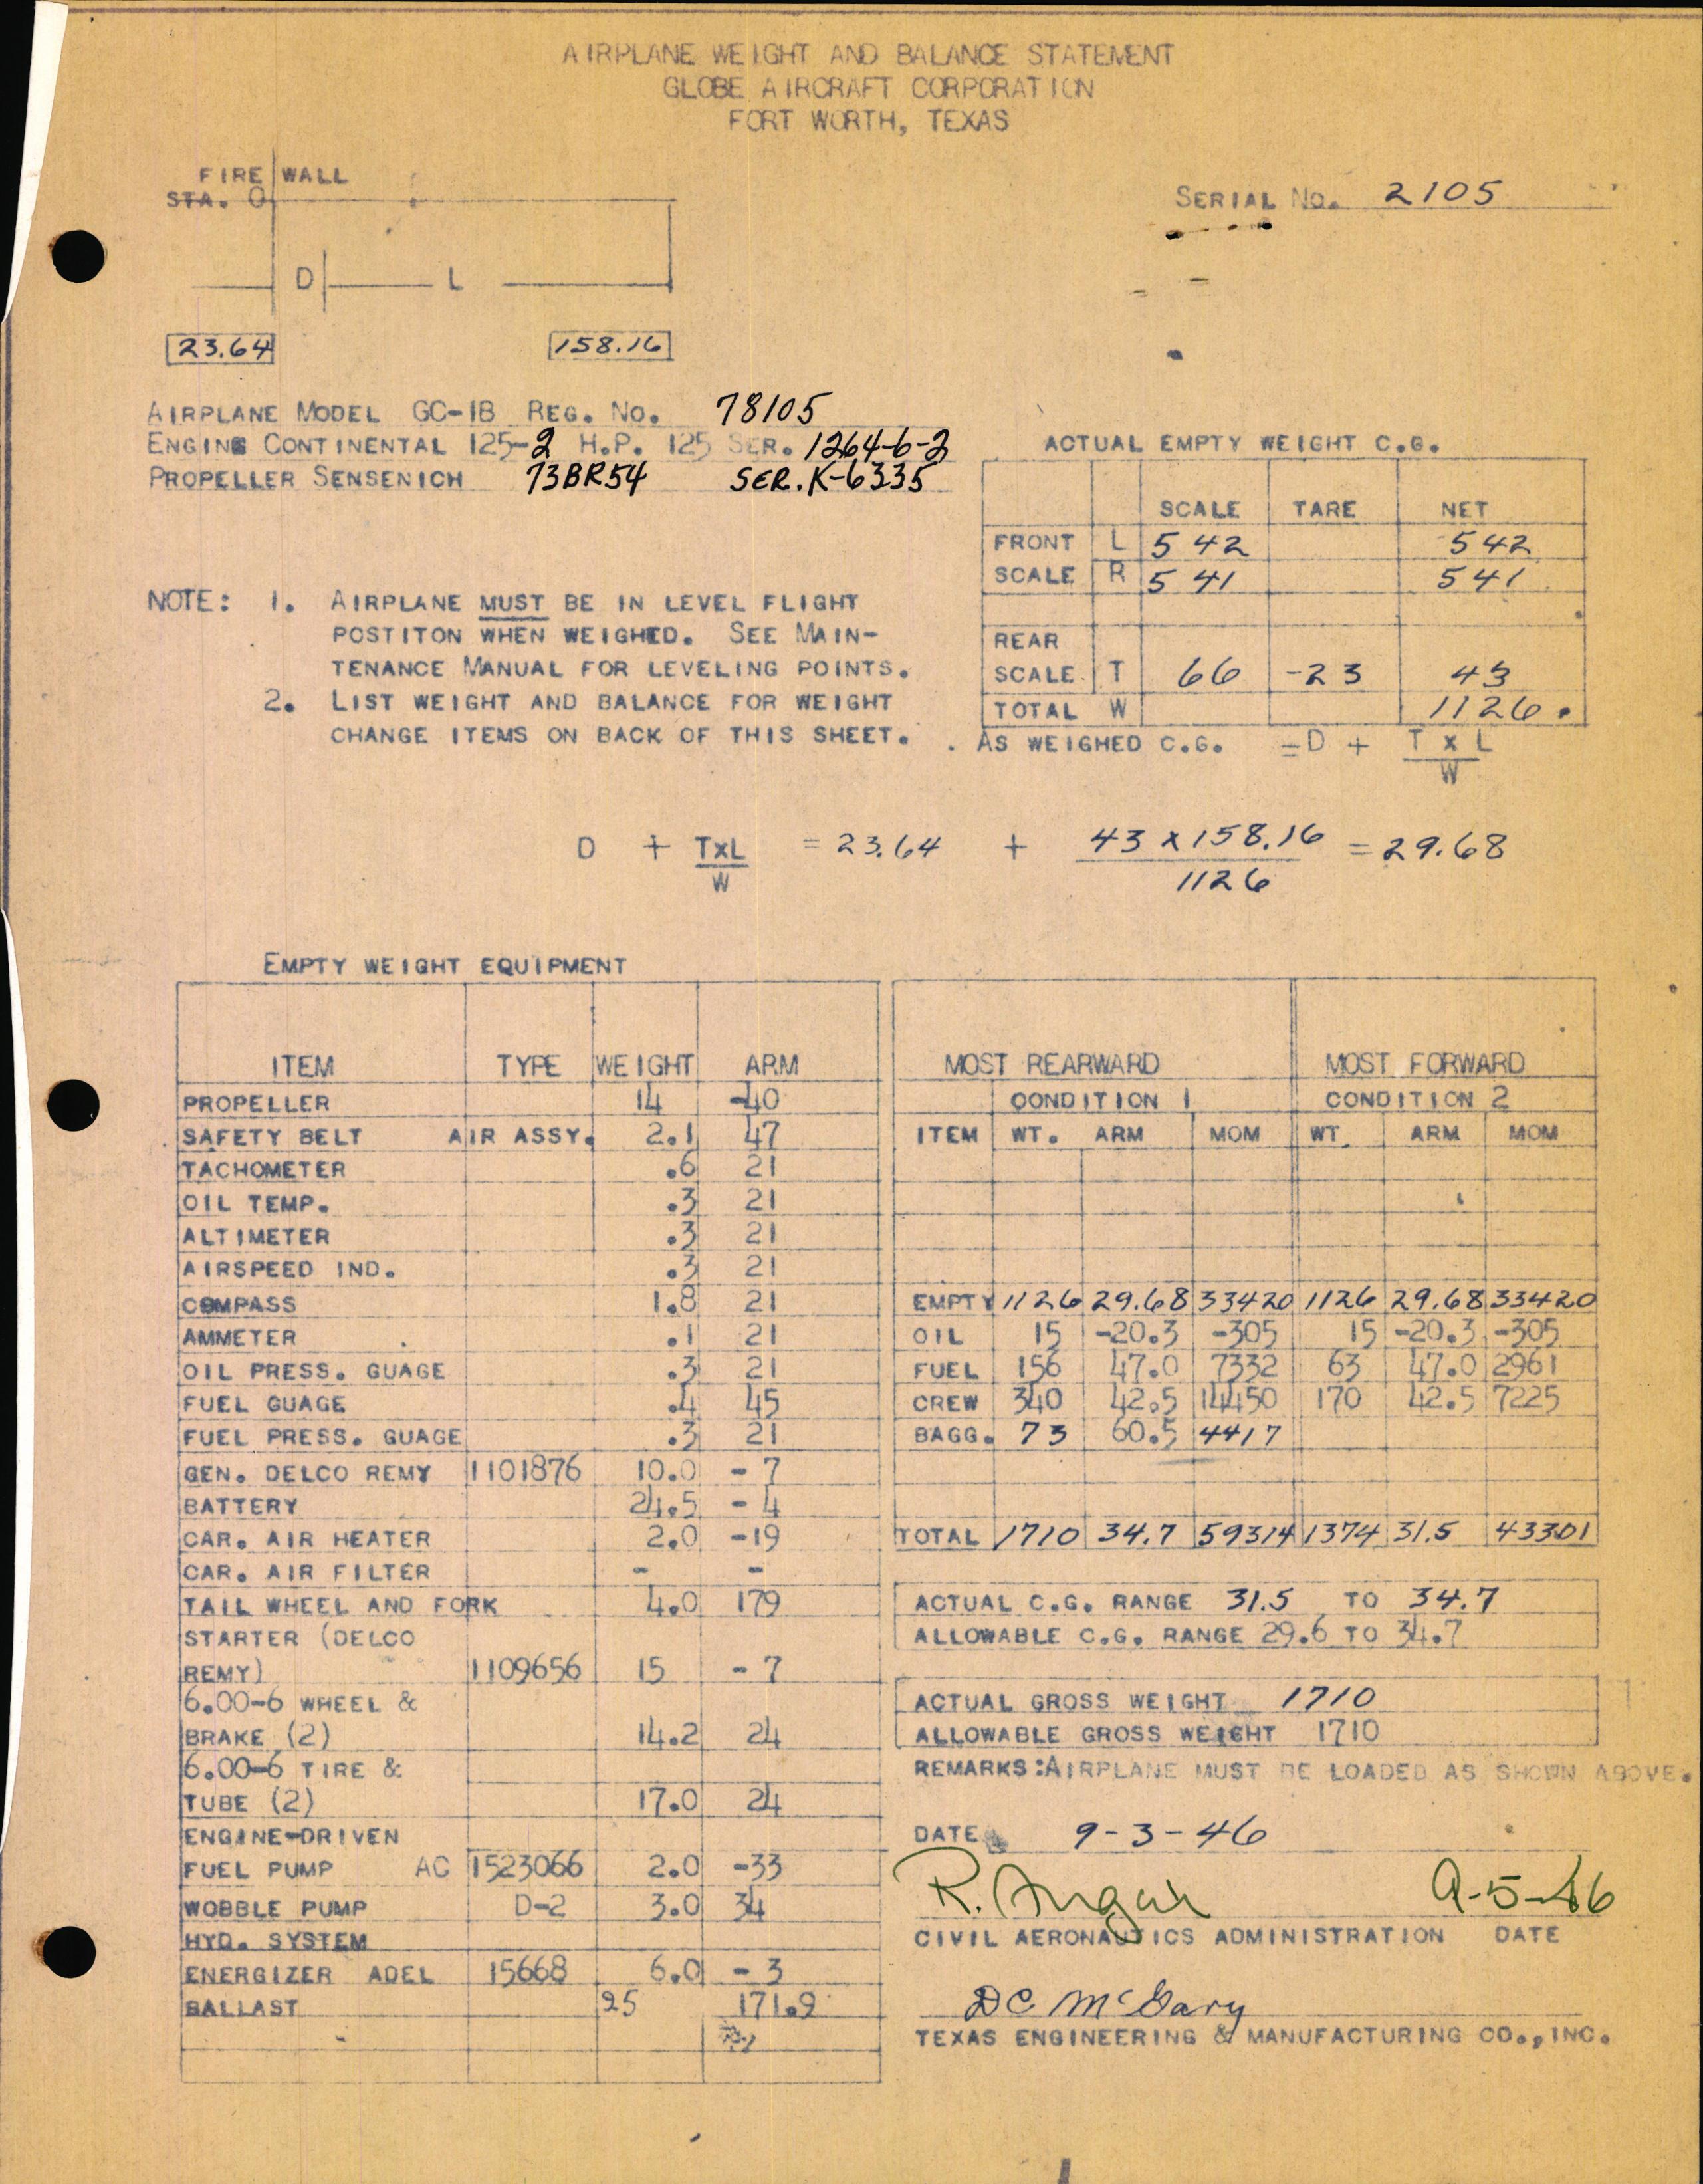 AIRPLANE WEIGHT AND BALANCE STATEMENT
GLOBE AIRCRAFT CORPORATION
FORT WORTH, TEXAS
FIRE WALL
STA. 0
SERIAL NO. 2105
D L
23.64 158.16
AIRPLANE MODEL GC-1B REG. NO. 78105
ENGINE CONTINENTAL 125-2 H.P. 125 SER. 1264-6-2
PROPELLER SENSENICH 73BR54 SER. K-6335
ACTUAL EMPTY WEIGHT C.G.
SCALE TARE NET
FRONT L 542 542
SCALE R 541 541
REAR
SCALE T 66 -23 43
TOTAL W 1126.
AS WEIGHED C.G. = D + T x L
W
NOTE: 1. AIRPLANE MUST BE IN LEVEL FLIGHT
POSTITON WHEN WEIGHED. SEE MAIN-
TENANCE MANUAL FOR LEVELING POINTS.
2. LIST WEIGHT AND BALANCE FOR WEIGHT
CHANGE ITEMS ON BACK OF THIS SHEET.
D + TxL = 23.64 + 43 x 158.16 = 29.68
W 1126
EMPTY WEIGHT EQUIPMENT
ITEM TYPE WEIGHT ARM
PROPELLER 14 -40
SAFETY BELT AIR ASSY. 2.1 47
TACHOMETER .6 21
OIL TEMP. .3 21
ALTIMETER .3 21
AIRSPEED IND. .3 21
COMPASS 1.8 21
AMMETER .1 21
OIL PRESS. GUAGE .3 21
FUEL GUAGE .4 45
FUEL PRESS. GUAGE .3 21
GEN. DELCO REMY 1101876 10.0 - 7
BATTERY 24.5 - 4
CAR. AIR HEATER 2.0 -19
CAR. AIR FILTER - -
TAIL WHEEL AND FORK 4.0 179
STARTER (DELCO
REMY) 1109656 15 - 7
6.00-6 WHEEL &
BRAKE (2) 14.2 24
6.00-6 TIRE &
TUBE (2) 17.0 24
ENGINE-DRIVEN
FUEL PUMP AC 1523066 2.0 -33
WOBBLE PUMP D-2 3.0 34
HYD. SYSTEM
ENERGIZER ADEL 15668 6.0 - 3
BALLAST 25 171.9
MOST REARWARD MOST FORWARD
CONDITION 1 CONDITION 2
ITEM WT. ARM MOM WT. ARM MOM
EMPTY 1126 29.68 33420 1126 29.68 33420
OIL 15 -20.3 -305 15 -20.3 -305
FUEL 156 47.0 7332 63 47.0 2961
CREW 340 42.5 14450 170 42.5 7225
BAGG. 73 60.5 4417
TOTAL 1710 34.7 59314 1374 31.5 43301
ACTUAL C.G. RANGE 31.5 TO 34.7
ALLOWABLE C.G. RANGE 29.6 TO 34.7
ACTUAL GROSS WEIGHT 1710
ALLOWABLE GROSS WEIGHT 1710
REMARKS: AIRPLANE MUST BE LOADED AS SHOWN ABOVE.
DATE 9-3-46
R. 9-5-46
CIVIL AERONAUTICS ADMINISTRATION DATE
DC McGary
TEXAS ENGINEERING & MANUFACTURING CO., INC.